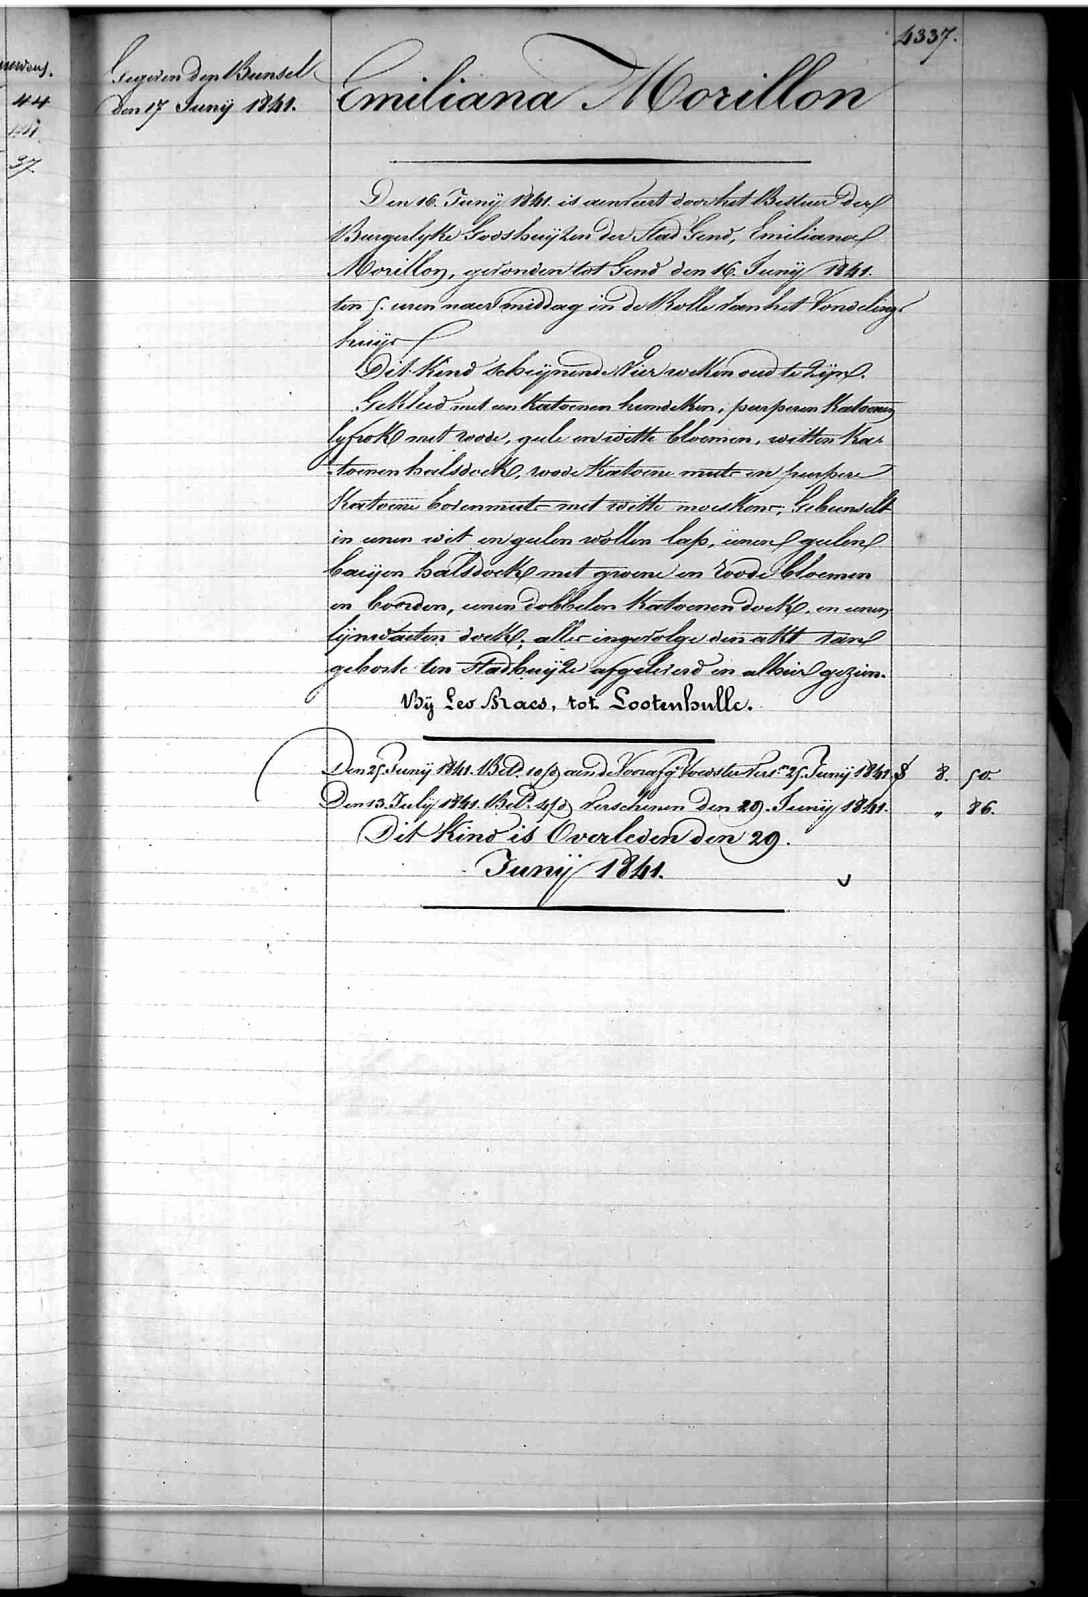 4337.
Gegeven den Bunsel
den 17 Junij 1841.
Emiliana Morillon
Den 16. Junij 1841. is aenveert door het Bestuer der
Burgerlyke Godshuijzen der Stad Gend, Emiliana
Morillon, gevonden tot Gend den 16. Junij 1841.
ten 5. uren naer middag in de Rolle van het Vondeling-
huijs
Dit Kind scheijnende Vier weken oud te Zijn.
Gekleed met een Katoenen hemdeken, purperen Katoenen
lyfrok met roode, geele en witte bloemen, witten Ka-
toenen halsdoek, roode Katoene muts en purpere
Katoene bovenmuts met witte moeskens, Gebunselt
in eenen wit en geelen wollen lap, eenen geelen
baeijen halsdoek met groene en roode bloemen
en boorden, eenen dobbelen Katoenen doek, en eenen
lijnwaeten doek; alles ingevolge den akt van
geboorte ten Stadhuijze afgeleverd en alhier gezien.
Bij Leo Braes, tot Lootenhulle.
Den 25 Junij 1841. Betd. 10/d aen de Voorafg. Voedster Vers.en 25 Junij 1841. 8. 50
Den 13. July 1841. Betd. 4/d Verschenen den 29. Junij 1841. „ 86.
Dit Kind is Overleden den 29.
Junij 1841.
44
37